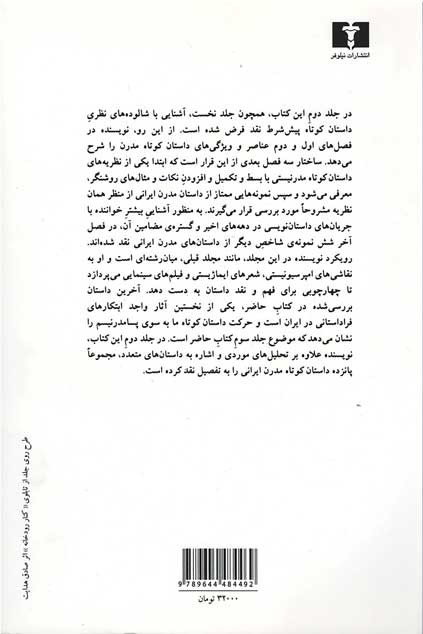 انتشارات نیلوفر
در جلد دوم این کتاب، همچون جلد نخست، آشنایی با شالوده‌های نظریِ
داستان کوتاه پیش‌شرط نقد فرض شده است. از این رو، نویسنده در
فصل‌های اول و دوم عناصر و ویژگی‌های داستان کوتاه مدرن را شرح
می‌دهد. ساختار سه فصل بعدی از این قرار است که ابتدا یکی از نظریه‌های
داستان کوتاه مدرنیستی با بسط و تکمیل و افزودنِ نکات و مثال‌های روشنگر،
معرفی می‌شود و سپس نمونه‌هایی ممتاز از داستان مدرن ایرانی از منظر همان
نظریه مشروحاً مورد بررسی قرار می‌گیرند. به منظور آشناییِ بیشتر خواننده با
جریان‌های داستان‌نویسی در دهه‌های اخیر و گستره‌ی مضامین آن، در فصل
آخر شش نمونه‌ی شاخصِ دیگر از داستان‌های مدرن ایرانی نقد شده‌اند.
رویکرد نویسنده در این مجلد، مانند مجلد قبلی، میان‌رشته‌ای است و او به
نقاشی‌های امپرسیونیستی، شعرهای ایماژیستی و فیلم‌های سینمایی می‌پردازد
تا چهارچوبی برای فهم و نقد داستان به دست دهد. آخرین داستان
بررسی‌شده در کتاب حاضر، یکی از نخستین آثار واجد ابتکارهای
فراداستانی در ایران است و حرکت داستان کوتاه ما به سوی پسامدرنیسم را
نشان می‌دهد که موضوع جلد سوم کتاب حاضر است. در جلد دوم این کتاب،
نویسنده علاوه بر تحلیل‌های موردی و اشاره به داستان‌های متعدد، مجموعاً
پانزده داستان کوتاه مدرن ایرانی را به تفصیل نقد کرده است.
طرح روی جلد از تابلوی «کنار رودخانه» اثر صادق هدایت
9 789644 484492
۳۲۰۰۰ تومان